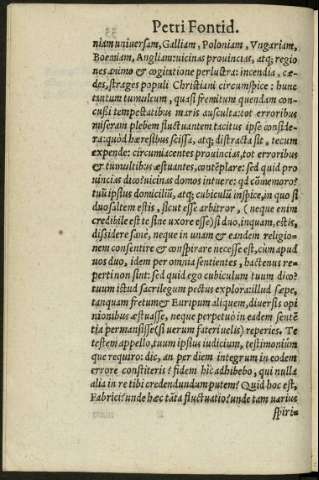 Petri Fontid.
niam uniuersam, Galliam, Poloniam, Vngariam,
Boemiam, Angliam: uicinas prouincias, atq; regio
nes animo & cogitatione perlustra: incendia, cæ-
des, strages populi Christiani circumspice: hunc
tantum tumultum, quasi fremitum quendam con-
cussi tempestatibus maris ausculta: tot erroribus
miseram plebem fluctuantem tacitus ipse conside-
ra: quòd hæresibus scissa, atq; distracta sit, tecum
expende: circumiacentes prouincias, tot erroribus
& tumultibus æstuantes, contẽplare: sed quid pro
uincias dico? uicinas domos intuere: qd cõmemoro?
tuũ ipsius domiciliũ, atq; cubiculũ inspice, in quo si
duo saltem estis, sicut esse arbitror, (neque enim
credibile est te sine uxore esse) si duo, inquam, estis,
dissidere sanè, neque in unam & eandem religio-
nem consentire & conspirare necesse est, cum apud
uos duo, idem per omnia sentientes, hactenus re-
perti non sint: sed quid ego cubiculum tuum dico?
tuum istud sacrilegum pectus explora: illud sæpe,
tanquam fretum & Euripum aliquem, diuersis opi
nionibus æstuasse, neque perpetuò in eadem sentẽ
tia permansisse (si uerum fateri uelis) reperies. Te
testem appello, tuum ipsius iudicium, testimoniũm
que requiro: dic, an per diem integrum in eodem
errore constiteris? fidem hîc adhibebo, qui nulla
alia in re tibi credendundum putem? Quid hoc est,
Fabrici? unde hæc tãta fluctuatio? unde tam uarius
spiri-